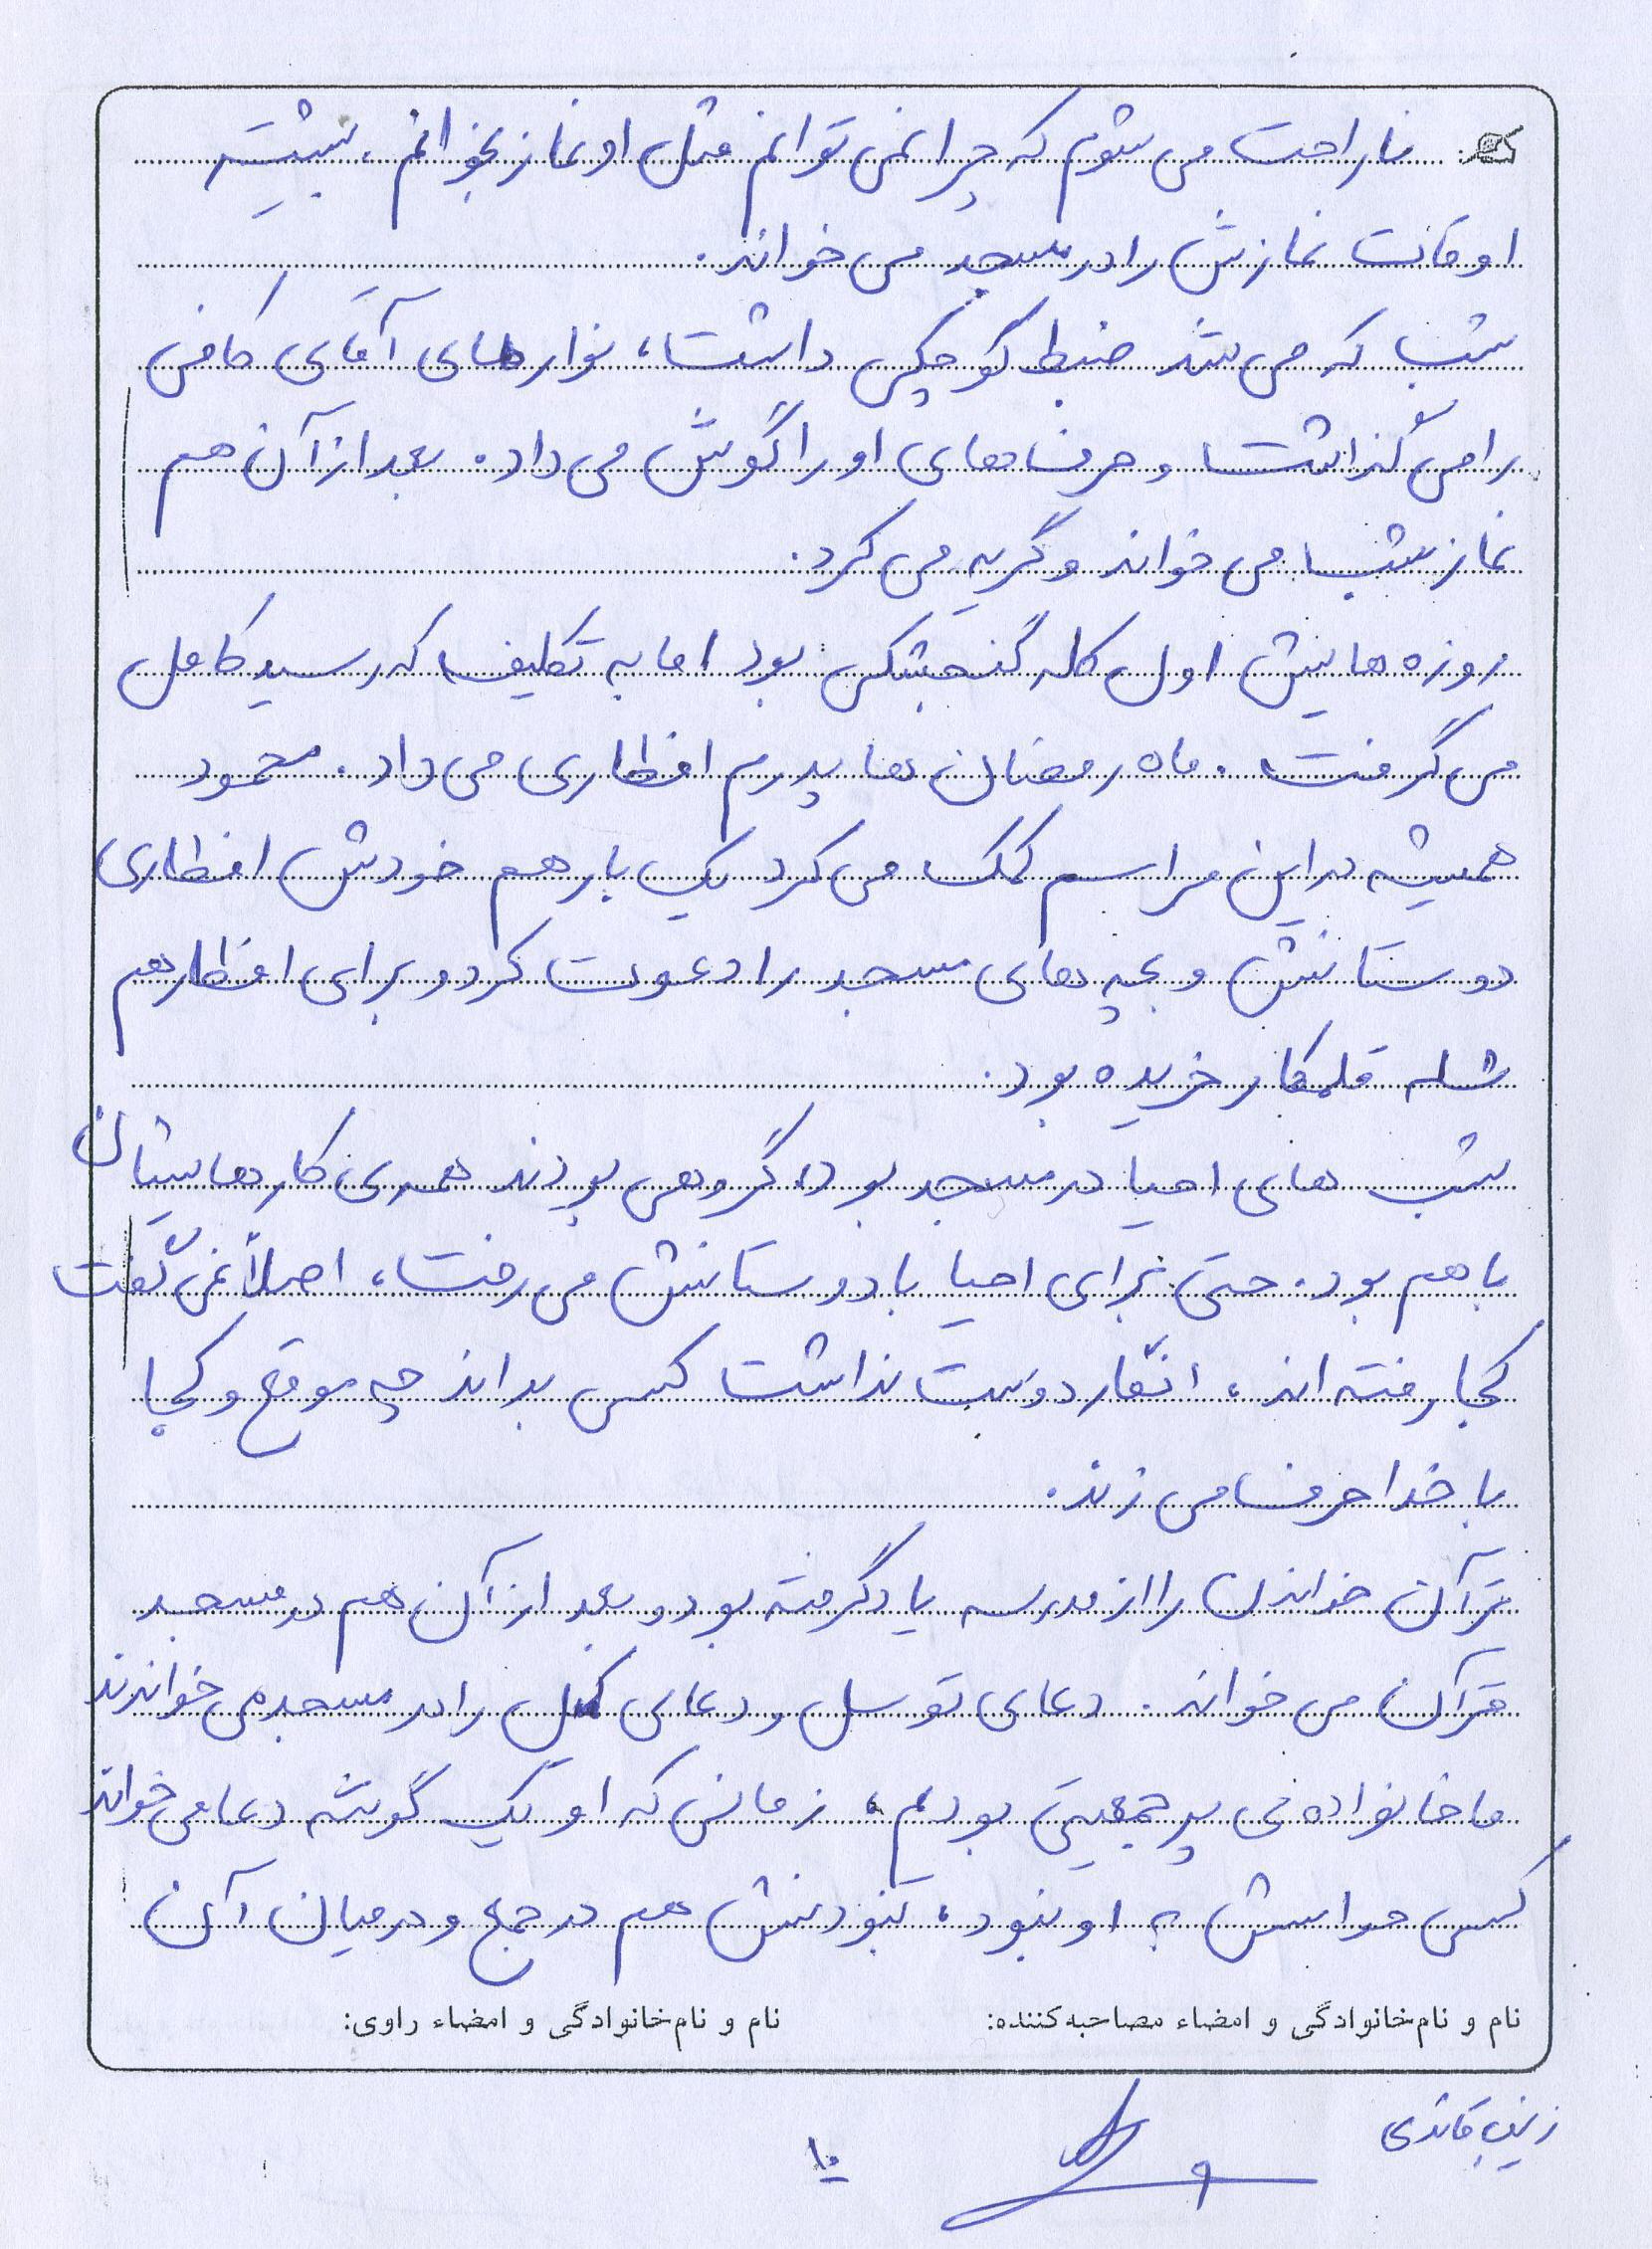 ناراحت می شوم که چرا نمی توانم مثل او نماز بخوانم، بیشتر
اوقات نمازش را در مسجد می خواند.
شب که می شد ضبط کوچکی داشت، نوارهای آقای کافی
را می گذاشت و حرف های او را گوش می داد. بعد از آن هم
نماز شب می خواند و گریه می کرد.
روزه هایش اول کله گنجشکی بود اما به تکلیف که رسید کامل
می گرفت. ماه رمضان ها پدرم افطاری می داد. محمود
همیشه در این مراسم کمک می کرد یک بار هم خودش افطاری
دوستانش و بچه های مسجد را دعوت کرد و برای افطار هم
شله قلمکار خریده بود.
شب های احیا در مسجد بود، گروهی بودند همه ی کارهایشان
با هم بود. حتی برای احیا با دوستانش می رفت، اصلاً نمی گفت
کجا رفته اند، انگار دوست نداشت کسی بداند چه موقع و کجا
با خدا حرف می زند.
قرآن خواندن را از مدرسه یاد گرفته بود و بعد از آن هم در مسجد
قرآن می خواند. دعای توسل و دعای کمیل را در مسجد می خواندند
ما خانواده ی پر جمعیتی بودیم، زمانی که او یک گوشه دعا می خواند
کسی حواسش به او نبود، نبودنش هم در جمع و در میان آن
نام و نام‌خانوادگی و امضاء مصاحبه‌کننده: نام و نام‌خانوادگی و امضاء راوی:
زینب قائدی
۹
۱۰